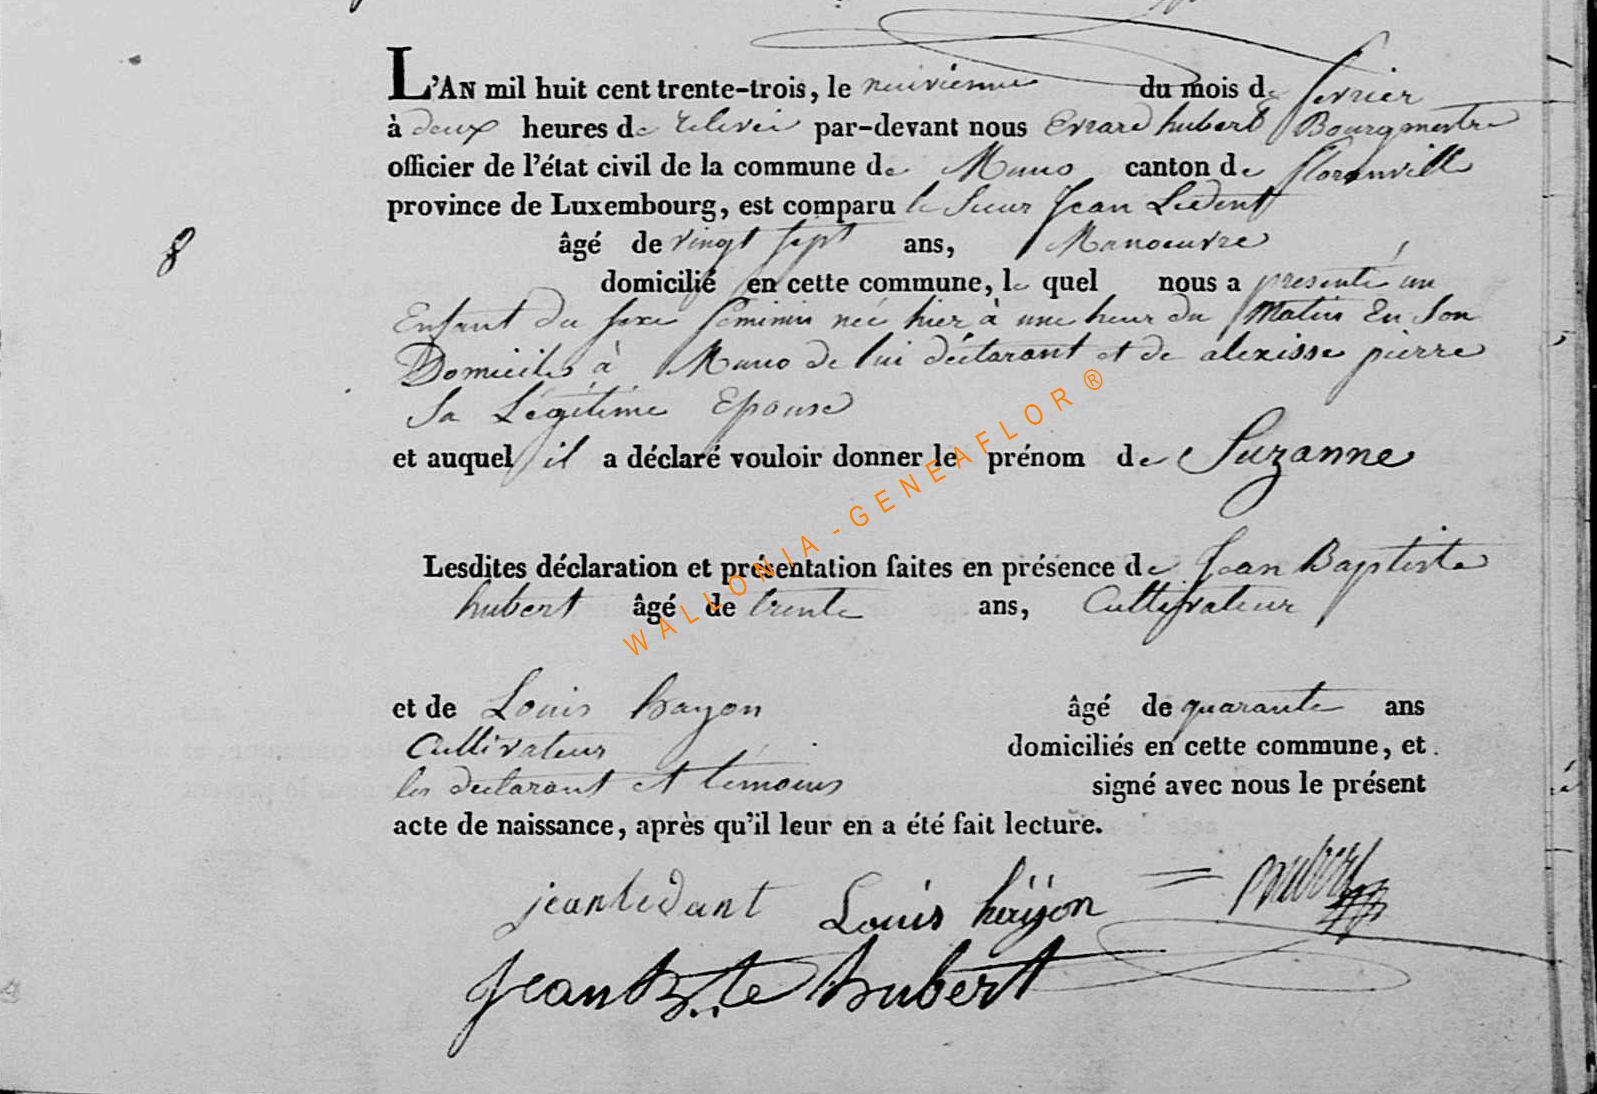 L'AN mil huit cent trente-trois, le neuvieme du mois de fevrier
à deux heures de relevée par-devant nous Evrard hubert Bourgmestre
officier de l'état civil de la commune de Muno canton de florenville
province de Luxembourg, est comparu le Sieur Jean Ledent
âgé de vingt sept ans, Manoeuvre
8
domicilié en cette commune, le quel nous a presenté un
Enfant du sexe feminin née hier à une heur du Matin En Son
Domicile à Muno de lui déclarant et de alexisse pierre
Sa Légitime Epouse
et auquel il a déclaré vouloir donner le prénom de Suzanne
Lesdites déclaration et présentation faites en présence de Jean Baptiste
hubert âgé de trente ans, Cultivateur
et de Louis hayon âgé de quarante ans
Cultivateur domiciliés en cette commune, et
les declarant et témoins signé avec nous le présent
acte de naissance, après qu'il leur en a été fait lecture.
jean ledant Louis häyon
Jean Bte hubert
WALLONIA-GENEAFLOR®